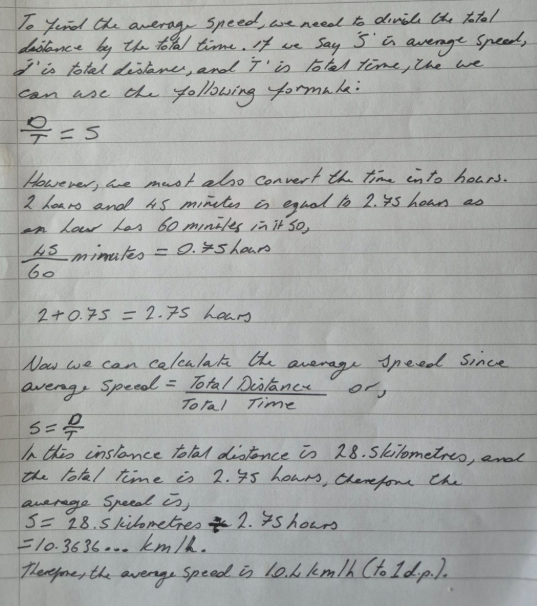 To find the average speed, we need to divide the total
distance by the total time. if we say 'S' is average speed,
'd' is total distance, and 'T' is total time, the we
can use the following formula:
D/T = S
However, we must also convert the time into hours.
2 hours and 45 minutes is equal to 2.75 hours as
an hour has 60 minutes in it so,
45/60 minutes = 0.75 hours
2+0.75 = 2.75 hours
Now we can calculate the average speed since
average speed = Total Distance/Total Time or,
S = D/T
In this instance total distance is 28.5 kilometres, and
the total time is 2.75 hours, therefore the
average speed is,
S = 28.5 kilometres ÷ 2.75 hours
=10.3636... km/h.
Therefore, the average speed is 10.4 km/h (to 1 d.p.).